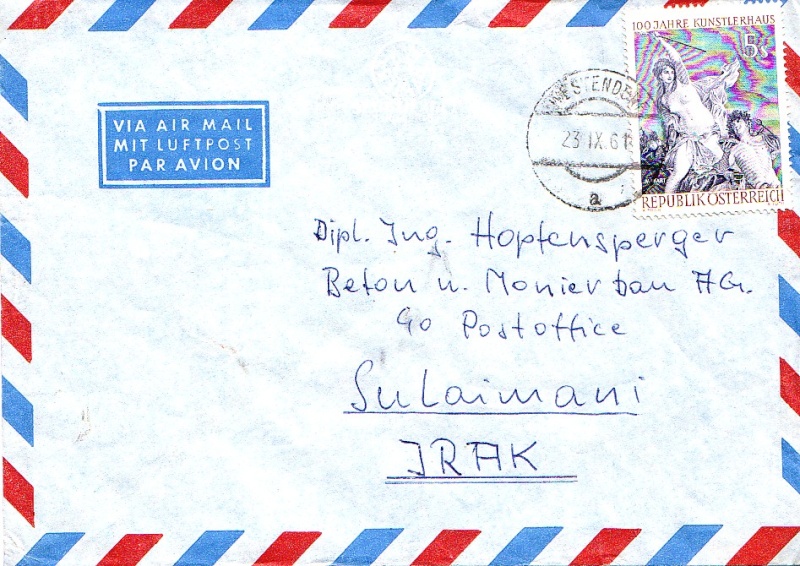 100 JAHRE KÜNSTLERHAUS
5S
REPUBLIK ÖSTERREICH
WESTENDORF
23.IX.61
a
VIA AIR MAIL
MIT LUFTPOST
PAR AVION
Dipl. Ing. Hopfensperger
Beton u. Monierbau AG.
c/o Postoffice
Sulaimani
IRAK